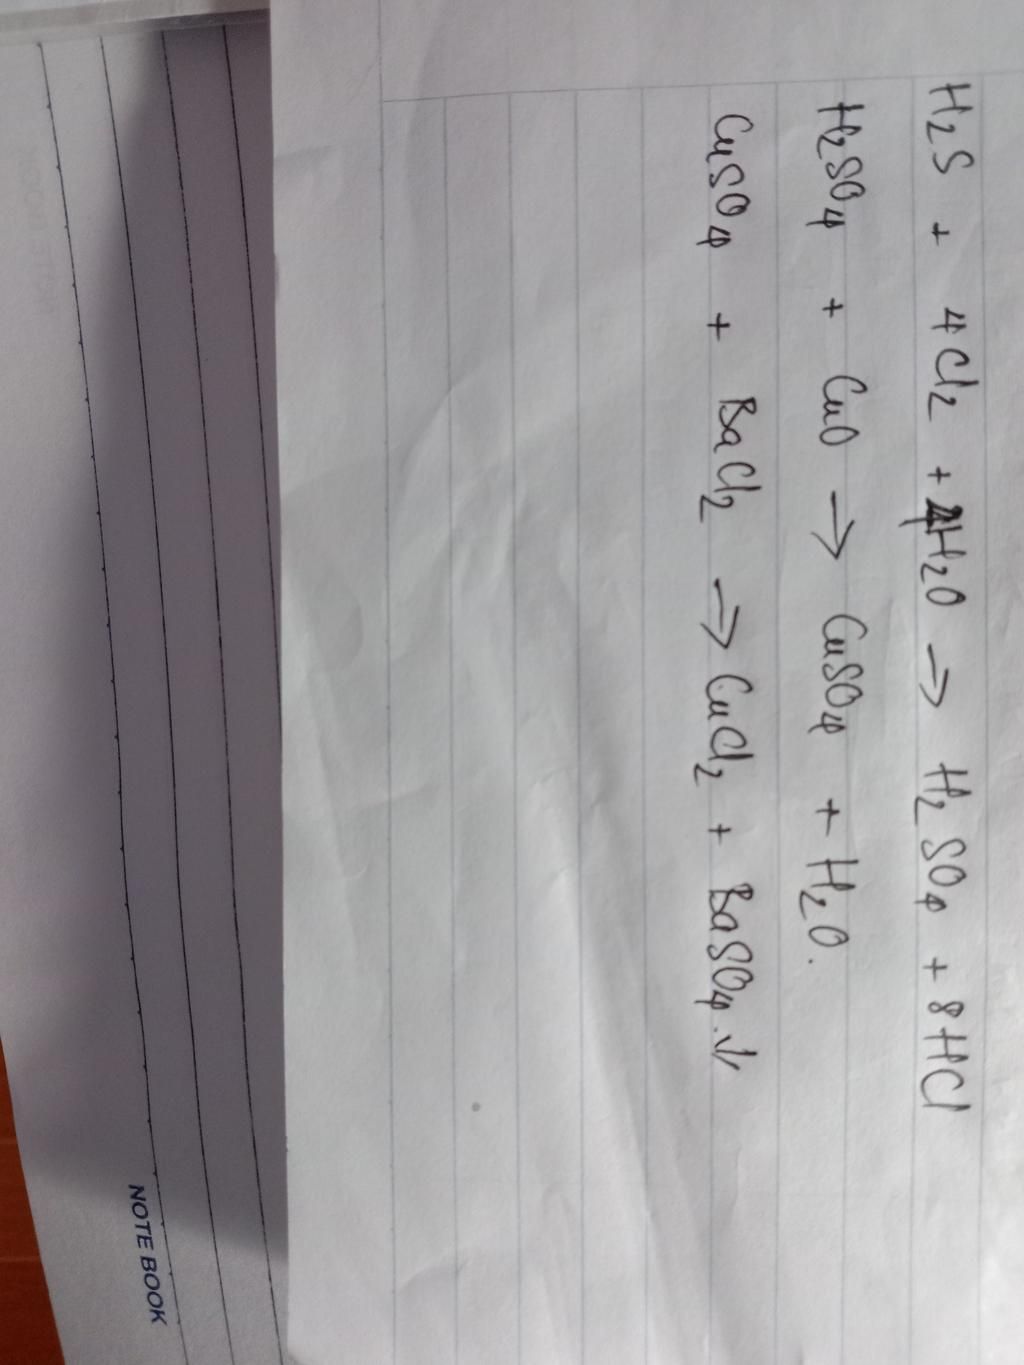 H2S + 4Cl2 + 4H2O → H2SO4 + 8HCl
H2SO4 + CuO → CuSO4 + H2O.
CuSO4 + BaCl2 → CuCl2 + BaSO4.↓
NOTE BOOK